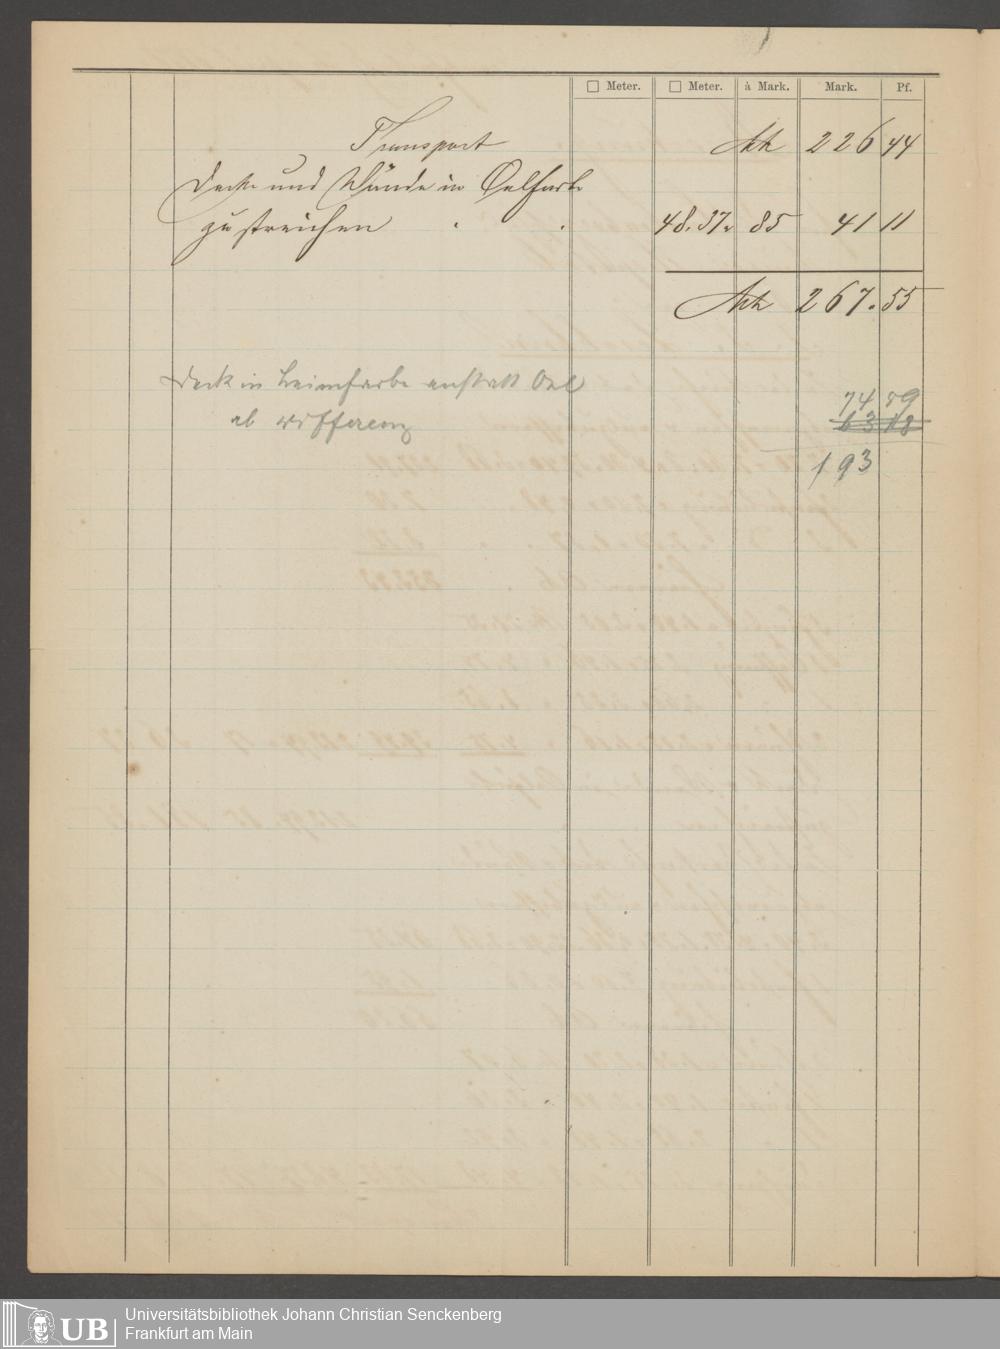 □ Meter. □ Meter. à Mark. Mark. Pf.
Transport Mk 226 44
Decke und Wände in Oelfarbe
zu streichen . . 48.37. 85 41 11
Mk 267.55
Deck in Leimfarbe anstatt Oel
74 59
ab Differenz
193
Universitätsbibliothek Johann Christian Senckenberg
UB Frankfurt am Main